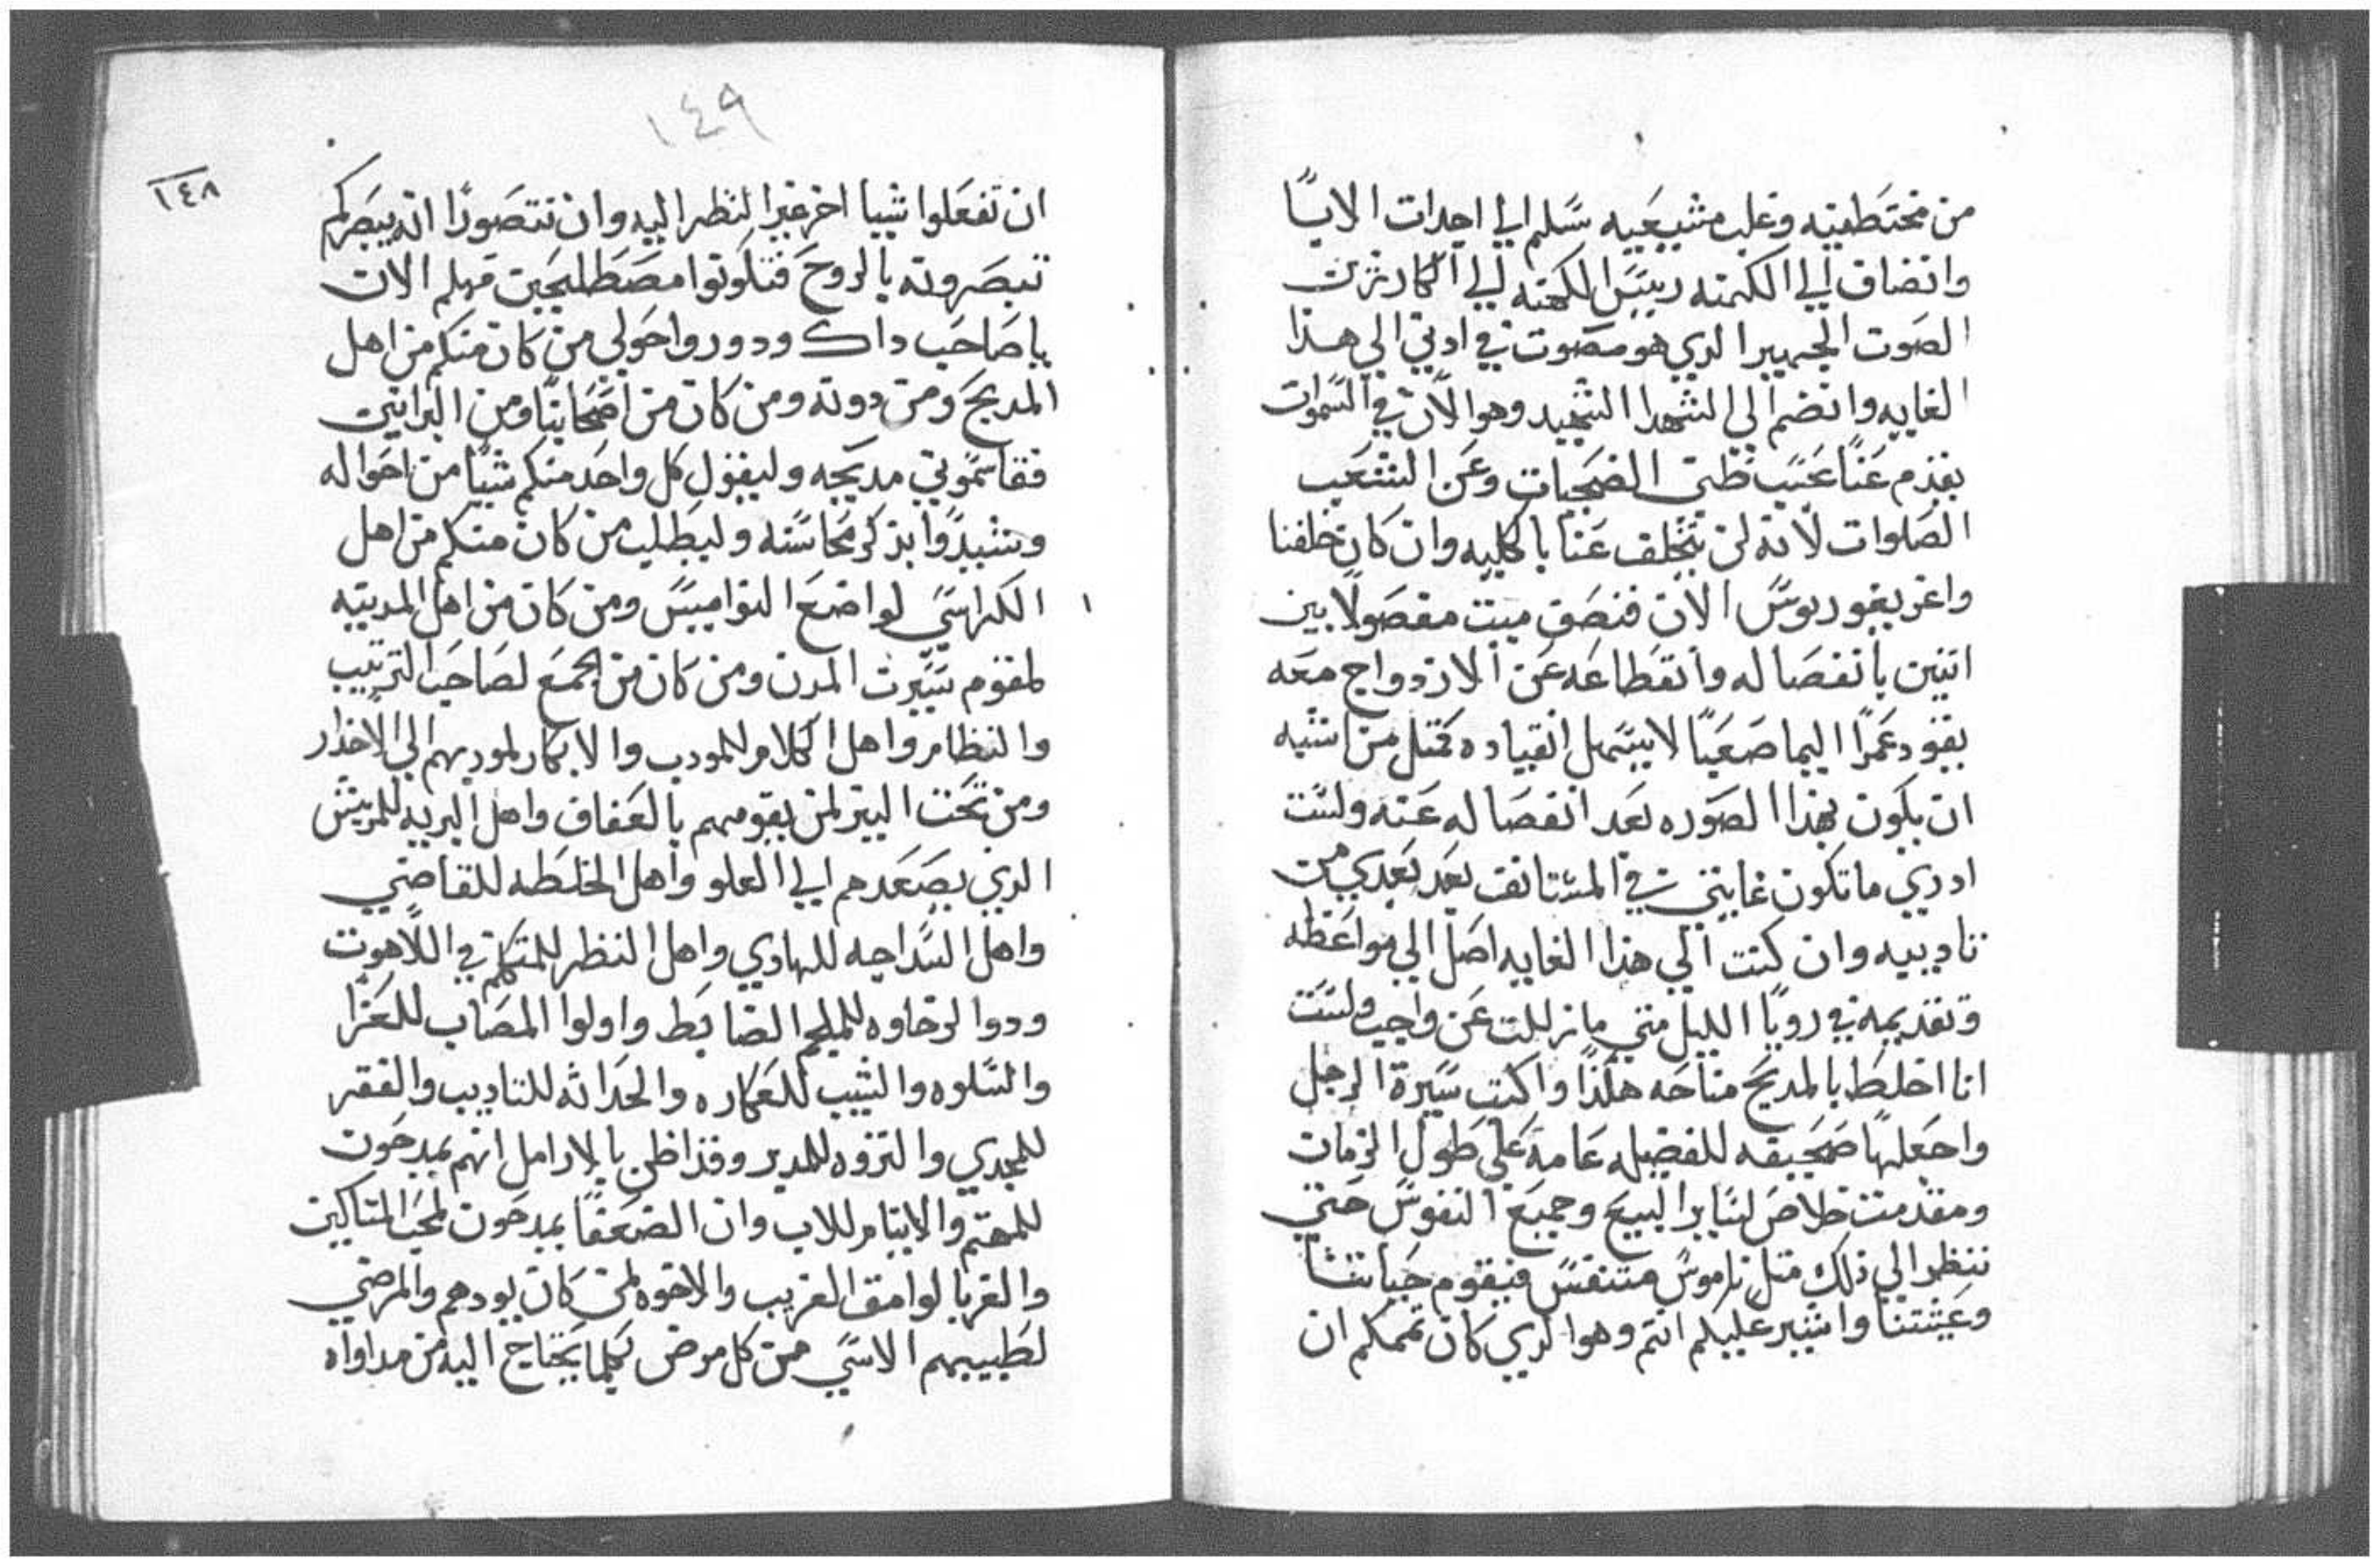 من مختطفيه وغلب مشيعيه سَلم الي اجدات الابا
وانضاف الي الكهنه رييسَ الكهنه الي الكارزين
الصَوت الجهير الدي هو مصَوت في ادني الي هذا
الغايه وانضم الي الشهدا الشهيد وهو الان في السَموات
يقدم عَنا عَسَب ظني الضحَيات وعَن الشعَب
الصَلوات لانه لن يتخلف عَنا بالكليه وان كان خلفنا
واغريغوريوسَ الان فنصَف ميت مفصَولا بين
اتنين بانفصَاله وانقطاعَه عَن الازدواج معَه
يقود عَمرًا اليما صَعَبًا لا يسَهل انقياده كمتل من اشبه
ان يكون بهذا الصَوره بعَد انفصَاله عَنه ولسَت
ادري ما تكون غايتي في المسَتانف بعَد بعَدي من
تاديبيه وان كنت الي هذا الغايه اصَل الي مواعَظه
وتقديمه في رويا الليل متي ما زللت عَن واجب ولسَت
انا اخلط بالمديحَ مناحَه هكذا واكتب سَيرة الرجل
واجعَلها صَحَيفه للفضيله عَامة عَلي طول الزمان
ومقدمت خلاصَ لسَاير البيعَ وجميعَ النفوسَ حَتي
ننظر الي ذلك متل ناموسَ متنفسَ فيقوم حَياتنا
وعَيشتنا واشير عَليكم انتم وهو الدي كان تممكم ان
١٤٩
١٤٨
ان تفعَلوا شيا اخر غير النظر اليه وان تتصَورا انه يبصَركم
تبصَرونه بالروحَ فتكونوا مصَطلحَين فهلم الان
يا صَاحَب داك ودوروا حَولي من كان منكم من اهل
المدبحَ ومن دونه ومن كان من اصَحَابنا ومن البرانين
فقاسَموني مديحَه وليقول كل واحَد منكم شيا من احَواله
وشيدوا بذكر محَاسَنه وليطلب من كان منكم من اهل
الكراسَي لواضعَ النواميسَ ومن كان من اهل المدينه
لمقوم سَيرت المدن ومن كان من الجمعَ لصَاحَب الترتيب
والنظام واهل الكلام للمودب والابكار لموديهم الي الاخدار
ومن تحَت النير لمن يقومهم بالعَفاف واهل البريه للمريش
الدي يصَعَدهم الي العَلو واهل الخلطه للقاضي
واهل السَداجه للهادي واهل النظر للمتكلم في اللاهوت
ودوا الرخاوه للملجم الضابط واولوا المصَاب للعَزا
والسَلوه والشيب للعَكاره والحَداثه للتاديب والفقر
للمجدي والثروه للمدبر وقد اظن بالارامل انهم يمدحَون
للمهتم والايتام للاب وان الضعَفا يمدحَون لمحَب المسَاكين
والغربا لوامق الغريب والاخوه لمن كان يودهم والمرضي
لطبيبهم الاسَي من كل مرض بكلما يحَتاج اليه من مداواه